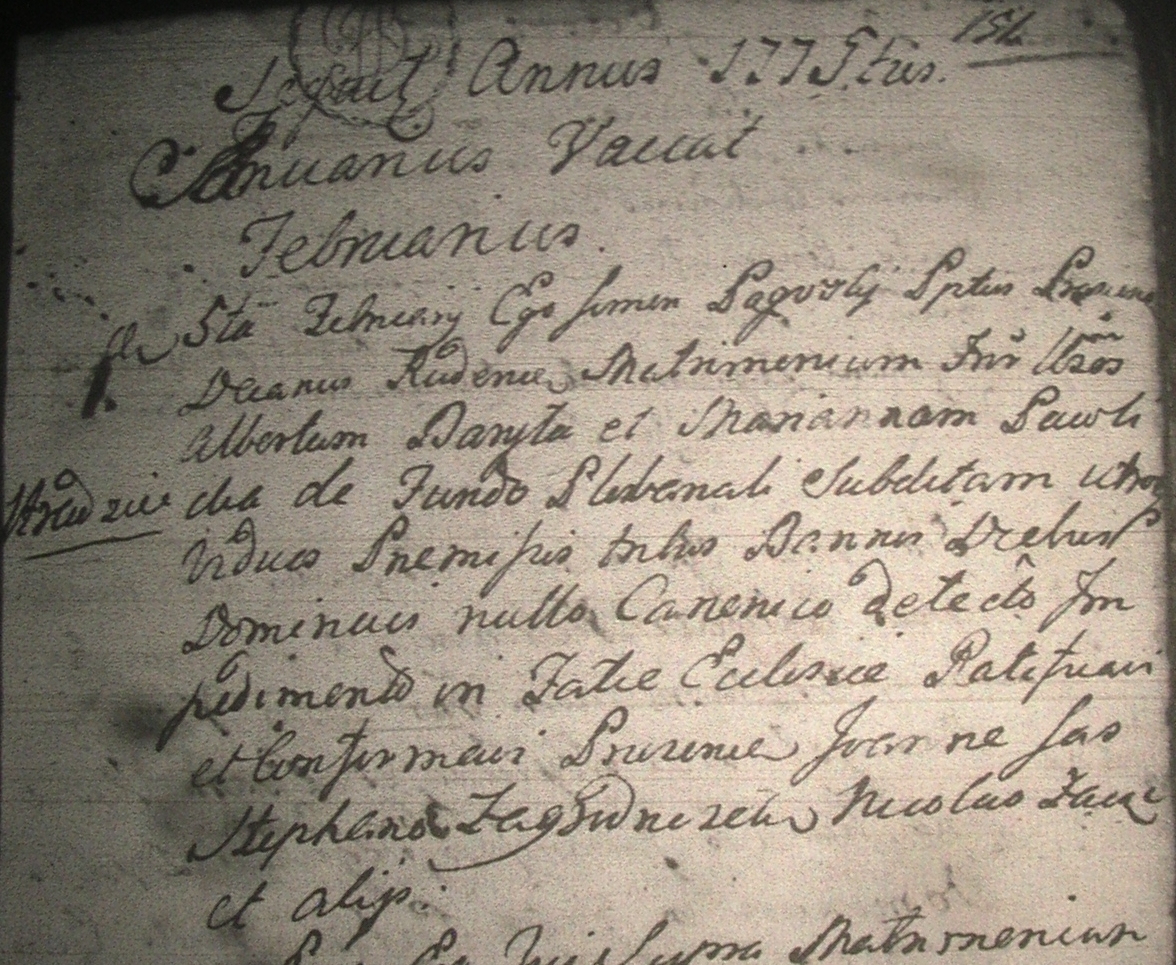 154
Sequit Annus 1775tus.
Januarius Vacat
Februarius.
5ta Februarij Ego Simon Sptus
Decanus Matrimonium Inr
Albertum Baryta et Mariannam Pawli
cha de Fundo Plebanali Subditam
Viduos Premissis tribus Bannis Diebus
Dominicis nullo Canonico detecto Im
pedimento in Facie Ecclesiae Ratificavi
et Confirmavi Joanne Sas
Stephano Nicolao
et alijs.
Supra Matrimonium